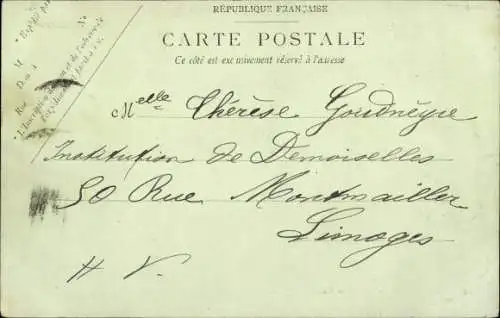 RÉPUBLIQUE FRANÇAISE
CARTE POSTALE
Ce côté est exclusivement réservé à l'adresse
No
M
Rue
Melle Thérèse Goudnèyre
Institution de Demoiselles
50 Rue Montmailler
Limoges
H V.